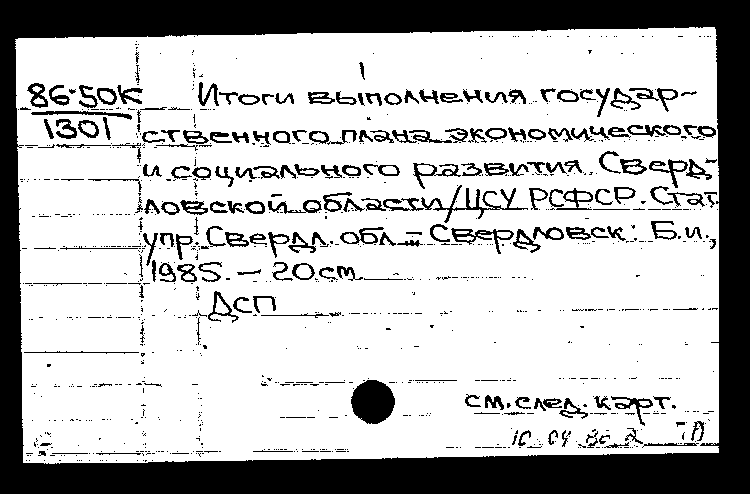 86-50К
1301
Итоги выполнения государ-
ственного плана экономического
и социального развития Сверд-
ловской области/ЦСУ РСФСР. Стат.
упр. Свердл. обл. — Свердловск: Б.и.,
1985. — 20 см
ДСП
см. след. карт.
10 04 86 2